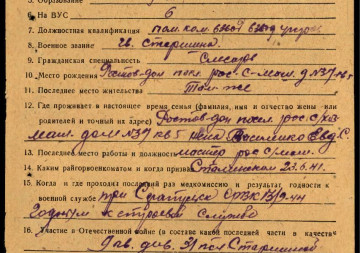 6. На ВУС 6
7. Должностная квалификация пом. ком.
8. Военное звание гв. Старшина
9. Гражданская специальность Слесарь
10. Место рождения Ростов-дон посл. рос. с-маш. д N37 кв 5
11. Последнее место жительства Там же
12. Где проживает в настоящее время семья (фамилия, имя и отчество жены или
родителей и точный их адрес) Ростов-дон посл. рос. с/х
маш. дом N37 кв 5 Евд. С.
13. Последнее место работы и должность мастер рос с/маш.
14. Каким райгорвоенкоматом и когда призван Сталинским 23.6.41.
15. Когда и где проходил последний раз медкомиссию и результат годности к
военной службе при
Годным к строевой службе
16. Участие в Отечественной войне (в составе какой последней части в качестве
Старшиной